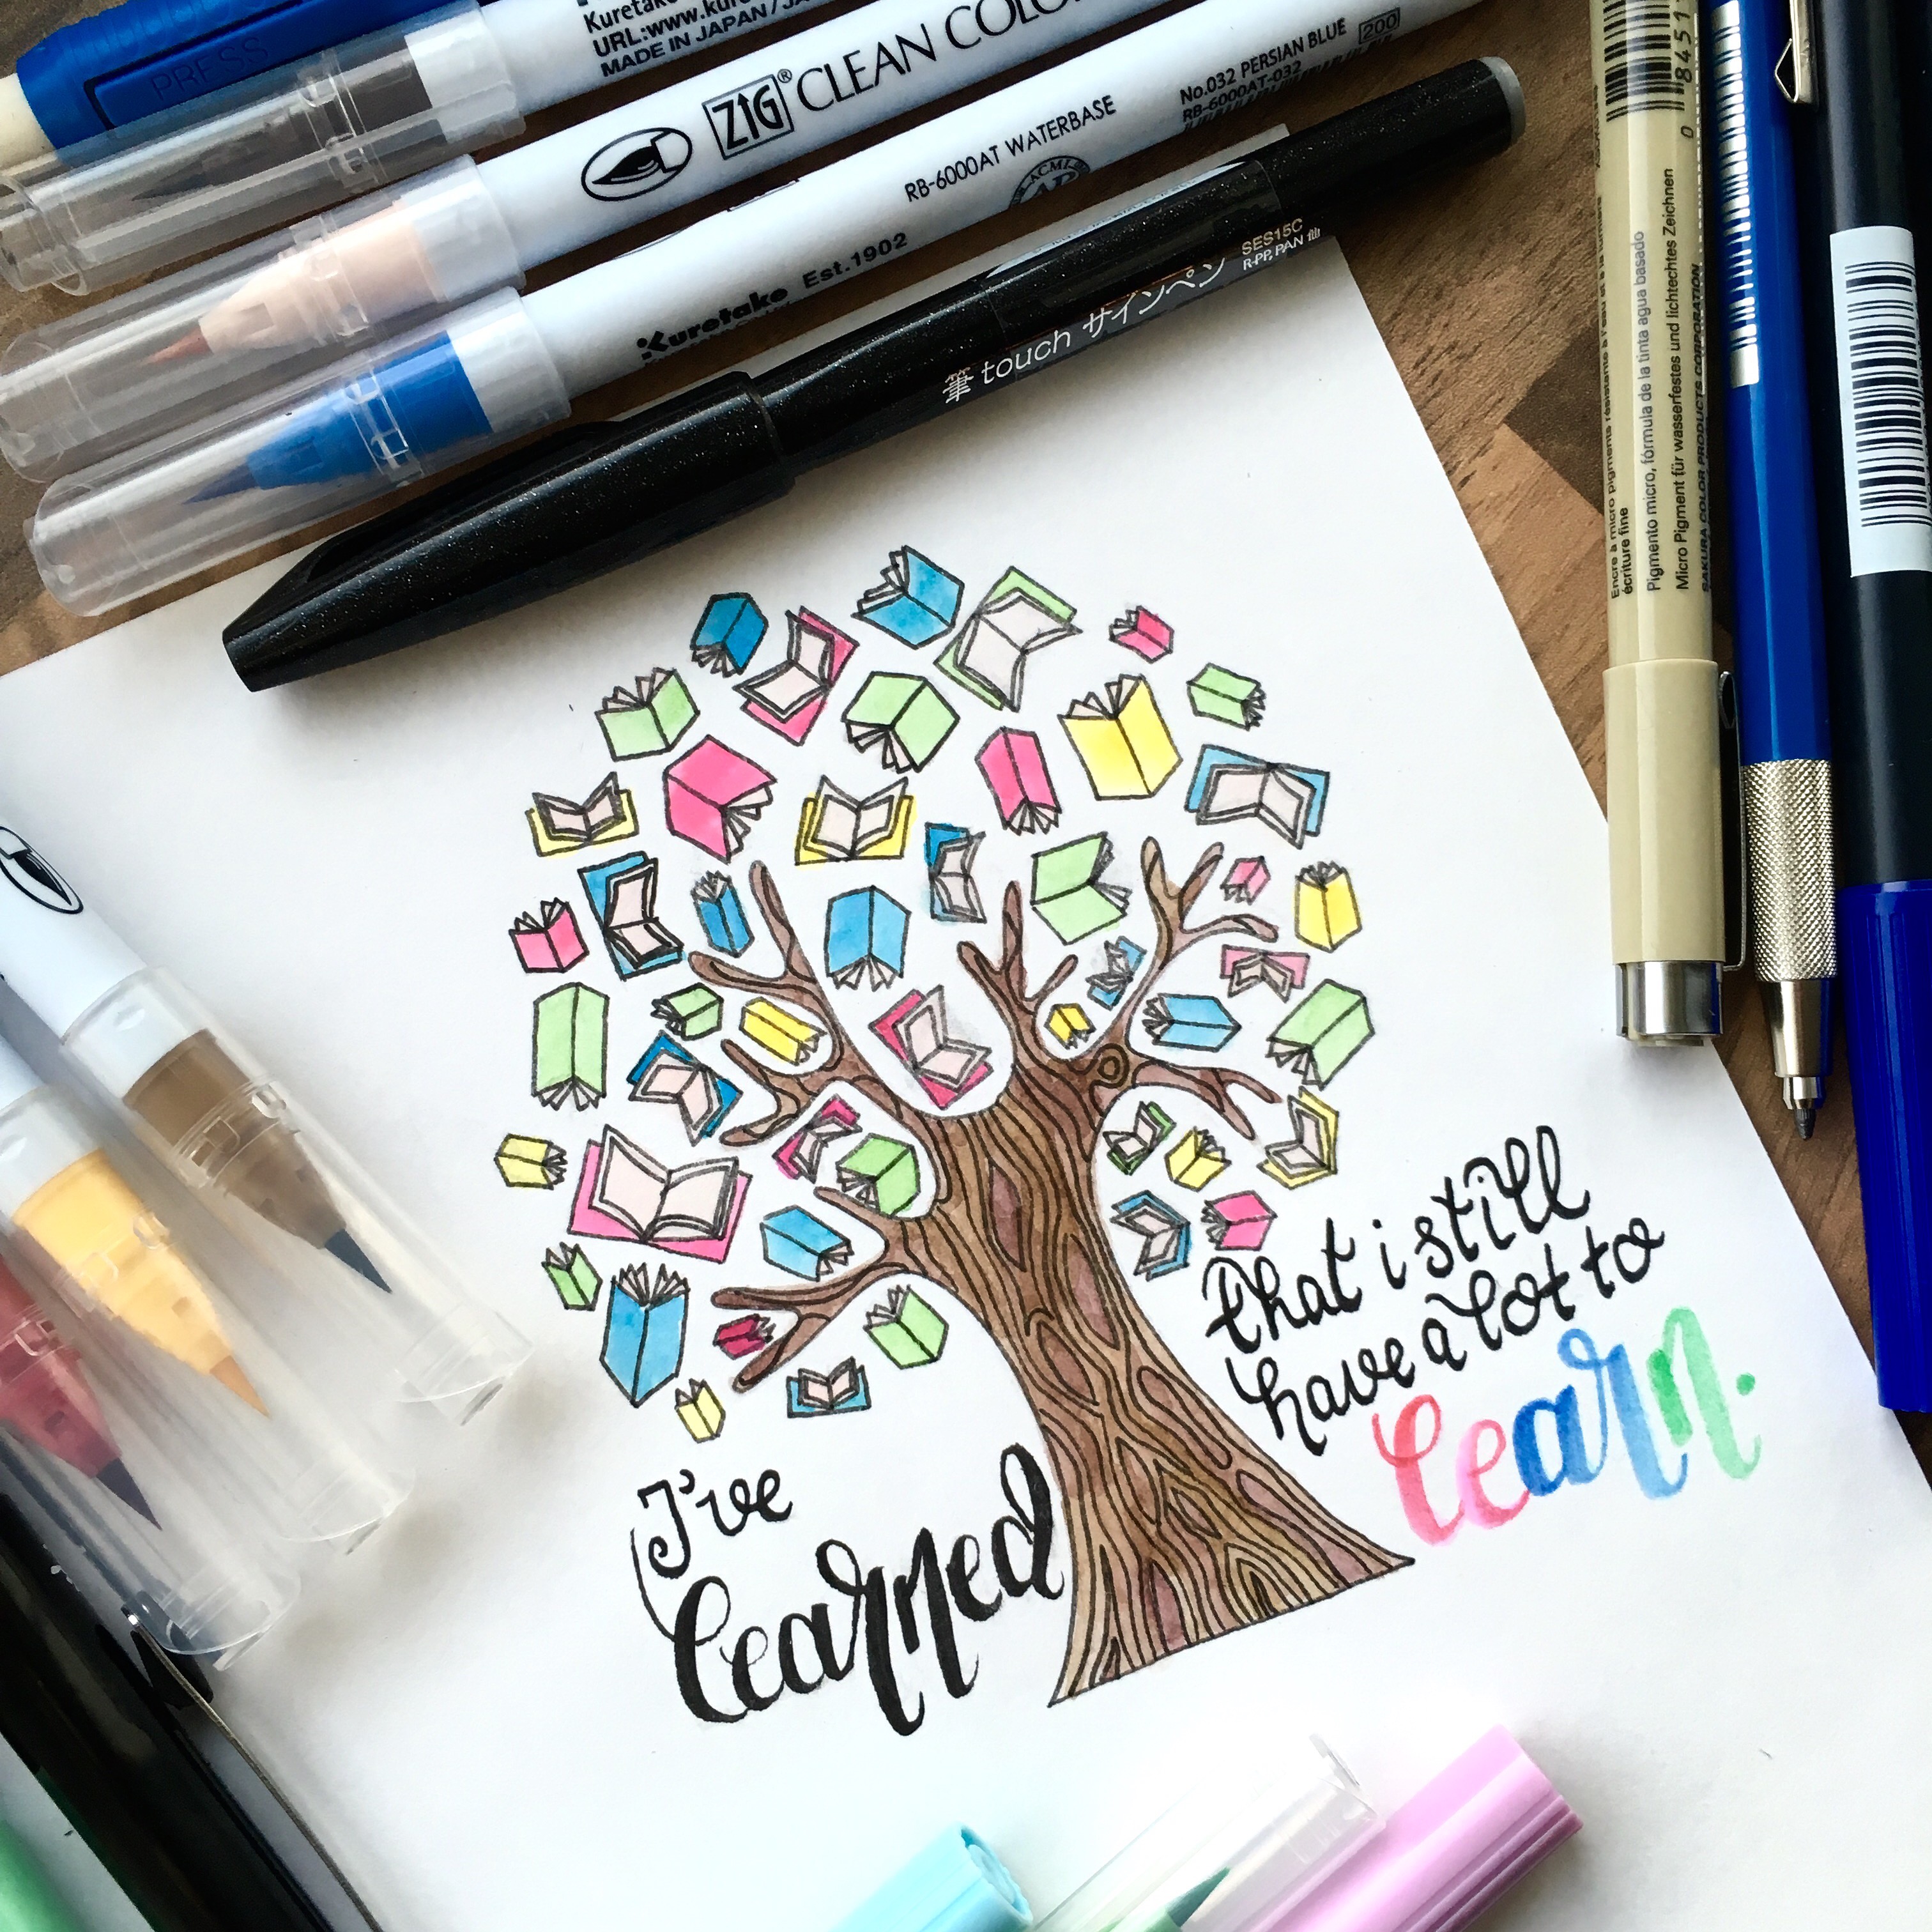 PRESS
Kuretake
URL:www.kure
MADE IN JAPAN/JA
ZIG® CLEAN COLO
RB-6000AT WATERBASE
No.032 PERSIAN BLUE 200
RB-6000AT-032
Kuretake Est.1902
筆touch サインペン
SES15C
R-PP, PAN 仙
0 84511
Encre à micro pigments résistante à l'eau et à la lumière
écriture fine
Pigmento micro, fórmula de la tinta agua basado
Micro Pigment für wasserfestes und lichtechtes Zeichnen
SAKURA COLOR PRODUCTS CORPORATION
I've
learned
that i still
have a lot to
learn.